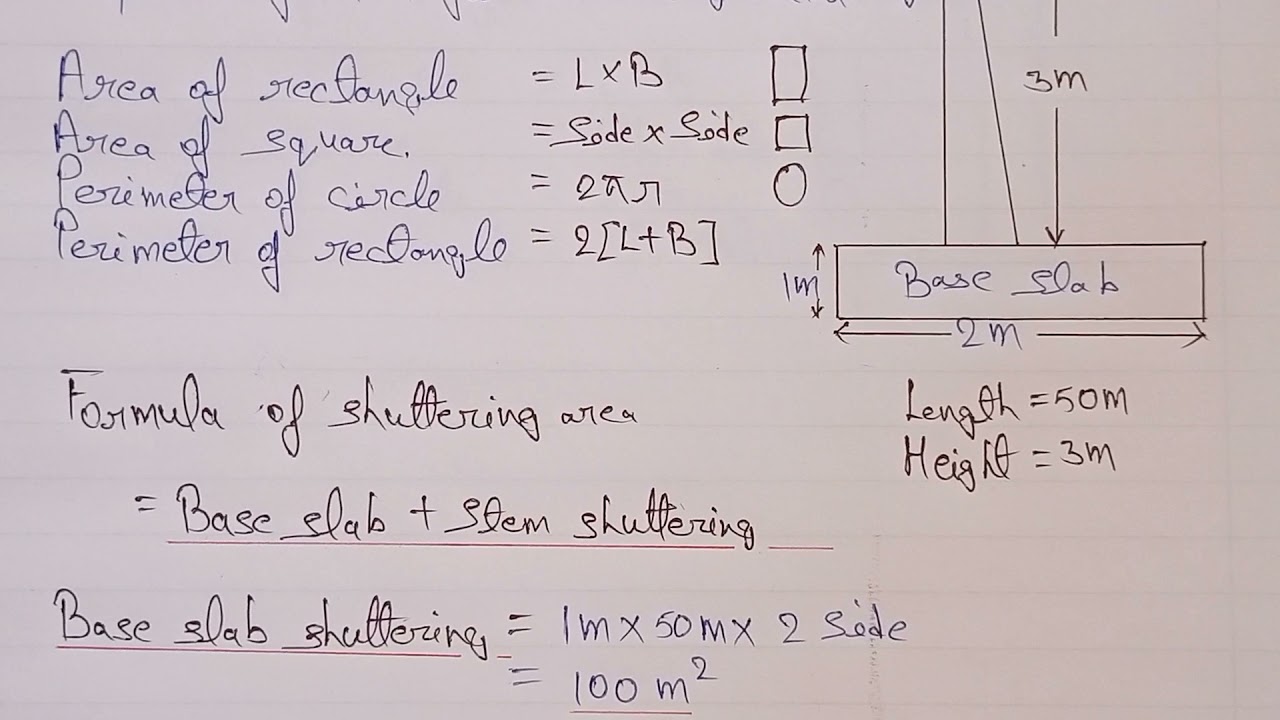 Area of rectangle = L×B
Area of square. = Side × Side
Perimeter of circle = 2πr
Perimeter of rectangle = 2[L+B]
3m
1m
Base slab
2m
Length = 50m
Height = 3m
Formula of shuttering area
= Base slab + Stem shuttering
Base slab shuttering = 1m × 50m × 2 Side
= 100 m²